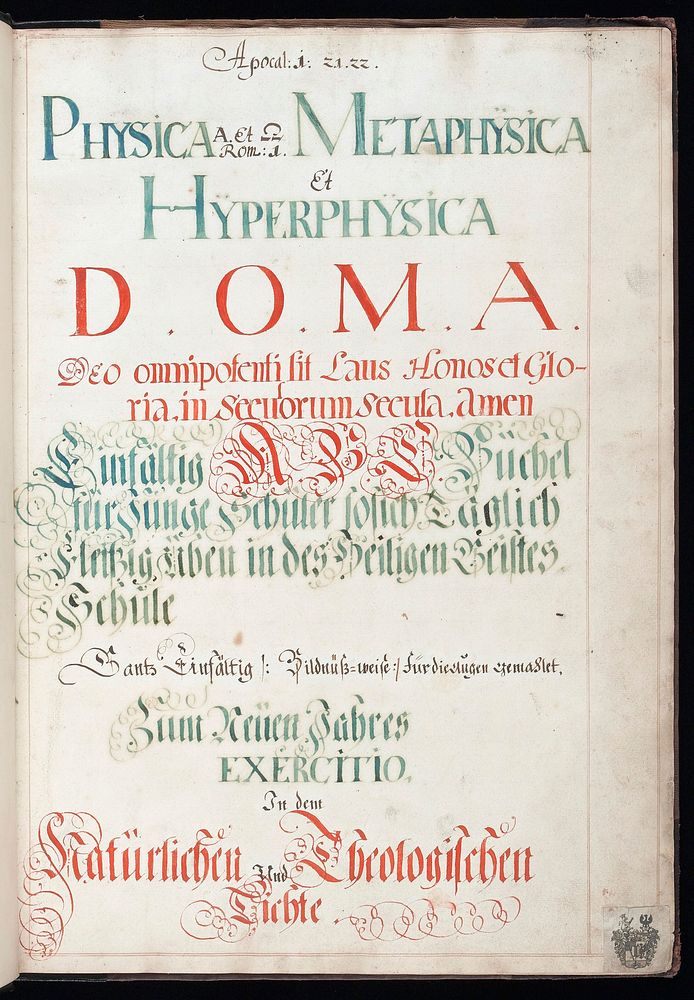 Apocal: 1: 21. 22.
PHYSICA A. Et Ω METAPHŸSICA
Rom: 1.
Et
HŸPERPHŸSICA
D. O. M. A.
Deo omnipotenti sit Laus Honos et Glo-
ria, in Secuorum Secula, Amen
Einfältig A B C Büchel
für Jünge Schüler so sich Täglich
Fleißig Üben in des Heiligen Geistes
Schüle
Gantz Einfältig /: Bildnüß=weise :/ für die Augen gemahlet.
Zum Neüen Jahres
EXERCITIO.
In dem
Natürlichen Und Theologischen
Lichte.